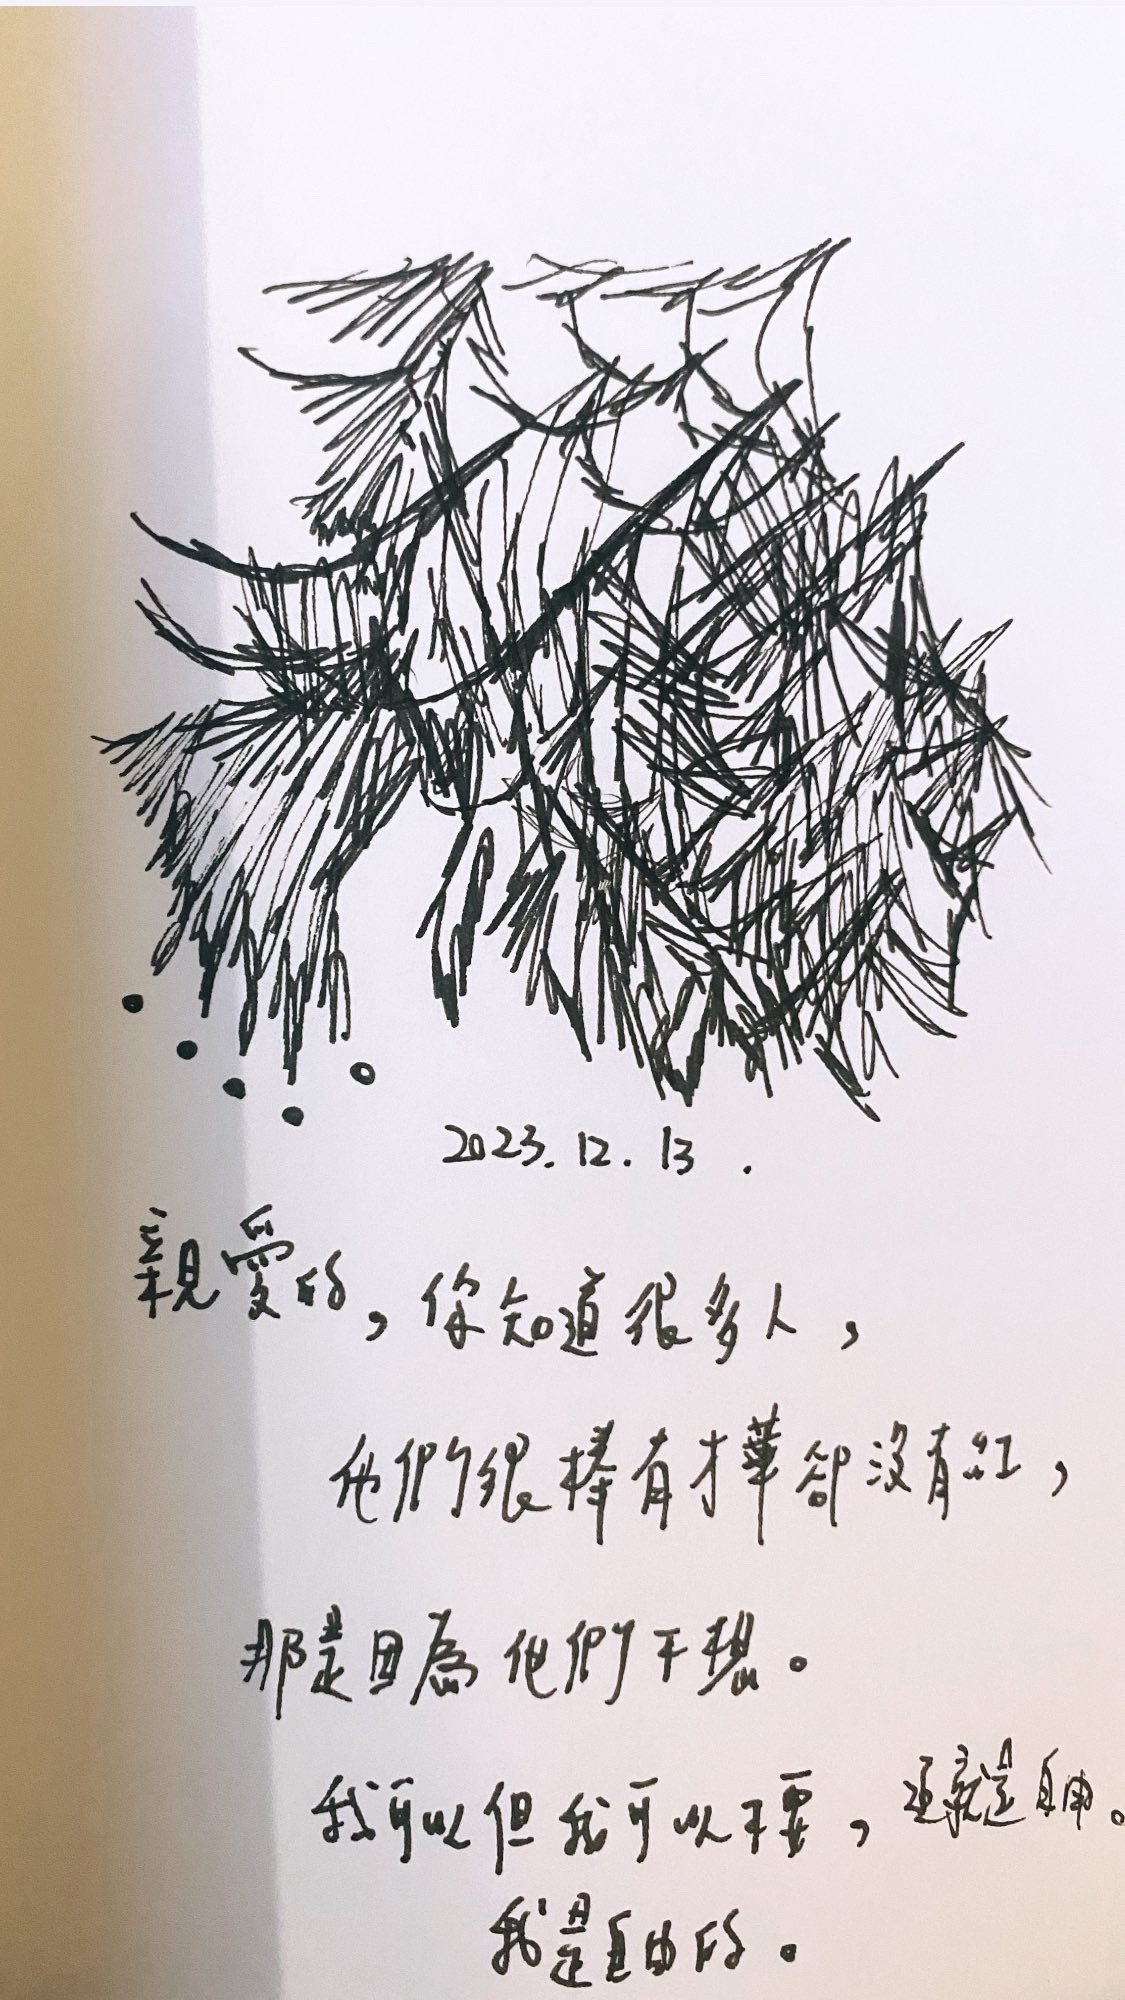 2023.12.13.
親愛的，你知道很多人，
他們很棒有才華卻沒有紅，
那是因為他們不想。
我可以但我可以不要，這就是自由。
我是自由的。